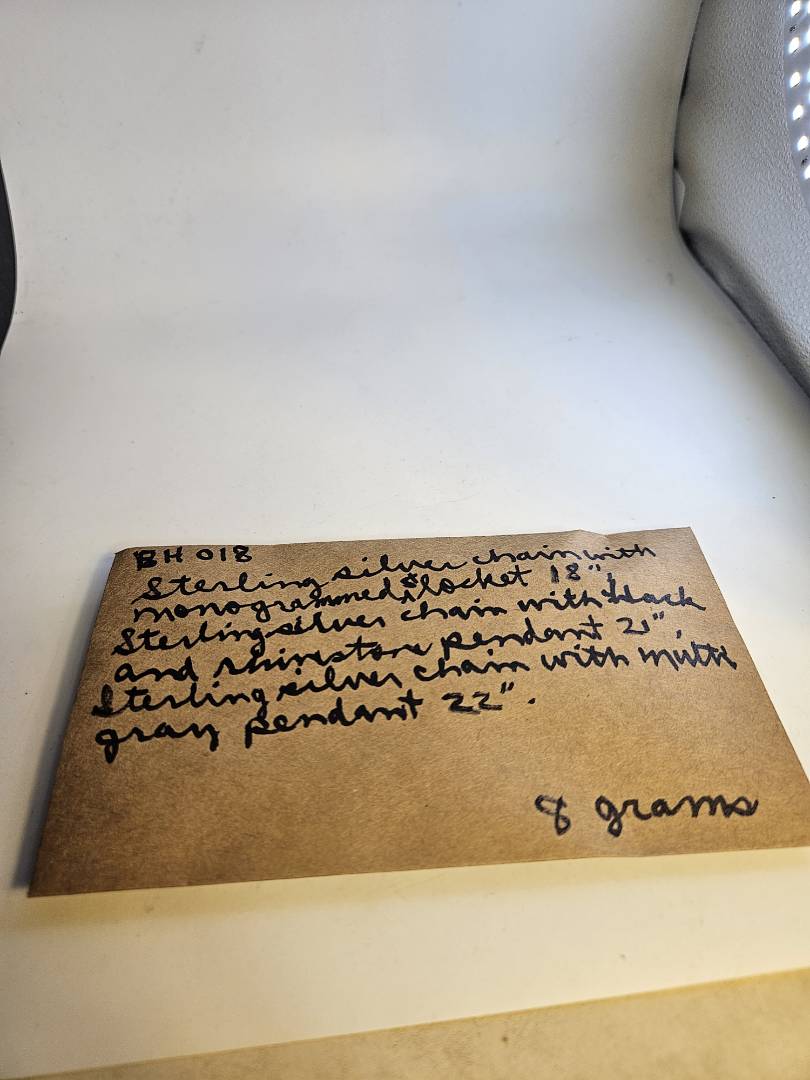 BH 018
Sterling silver chain with
monogrammed S locket 18",
Sterling silver chain with black
and rhinestone pendant 21",
Sterling silver chain with multi
gray pendant 22".
8 grams